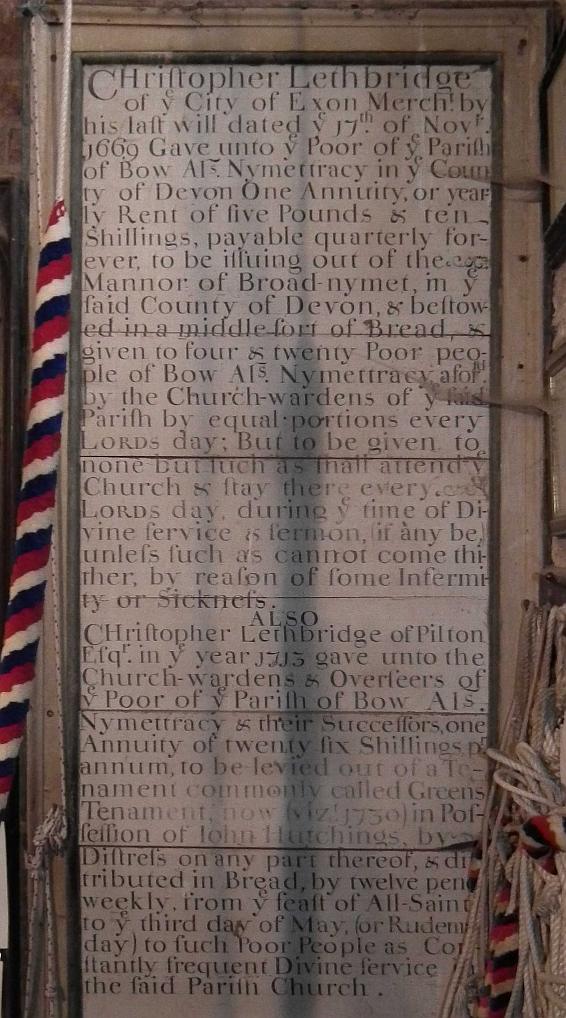 CHriſtopher Lethbridge
of yͤ City of Exon Mercht. by
his laſt will dated yͤ 17th. of Novr.
1669 Gave unto yͤ Poor of yͤ Pariſh
of Bow Als. Nymettracy in yͤ Coun
ty of Devon One Annuity, or year
ly Rent of five Pounds & ten
Shillings, payable quarterly for-
ever, to be iſſuing out of the
Mannor of Broad-nymet, in yͤ
ſaid County of Devon, & beſtow-
ed in a middle ſort of Bread, &
given to four & twenty Poor peo-
ple of Bow Als. Nymettracy aforſd
by the Church-wardens of yͤ ſaid
Pariſh by equal portions every
LORDS day; But to be given to
none but ſuch as ſhall attend yͤ
Church & ſtay there every
LORDS day, during yͤ time of Di-
vine ſervice & ſermon, (if any be,)
unleſs ſuch as cannot come thi-
ther, by reaſon of ſome Infermi-
ty or Sickneſs.
ALSO
CHriſtopher Lethbridge of Pilton
Eſqr. in yͤ year 1713 gave unto the
Church-wardens & Overſeers of
yͤ Poor of yͤ Pariſh of Bow Als.
Nymettracy & their Succeſſors, one
Annuity of twenty ſix Shillings pr
annum, to be levied out of a Te-
nament commonly called Greens
Tenament, now (vizt. 1730) in Poſ-
ſeſſion of Iohn Hutchings, by
Diſtreſs on any part thereof, & diſ
tributed in Bread, by twelve penc
weekly, from yͤ feaſt of All-Saint
to yͤ third day of May, (or Rudem
day) to ſuch Poor People as Con-
ſtantly frequent Divine ſervice in
the ſaid Pariſh Church.